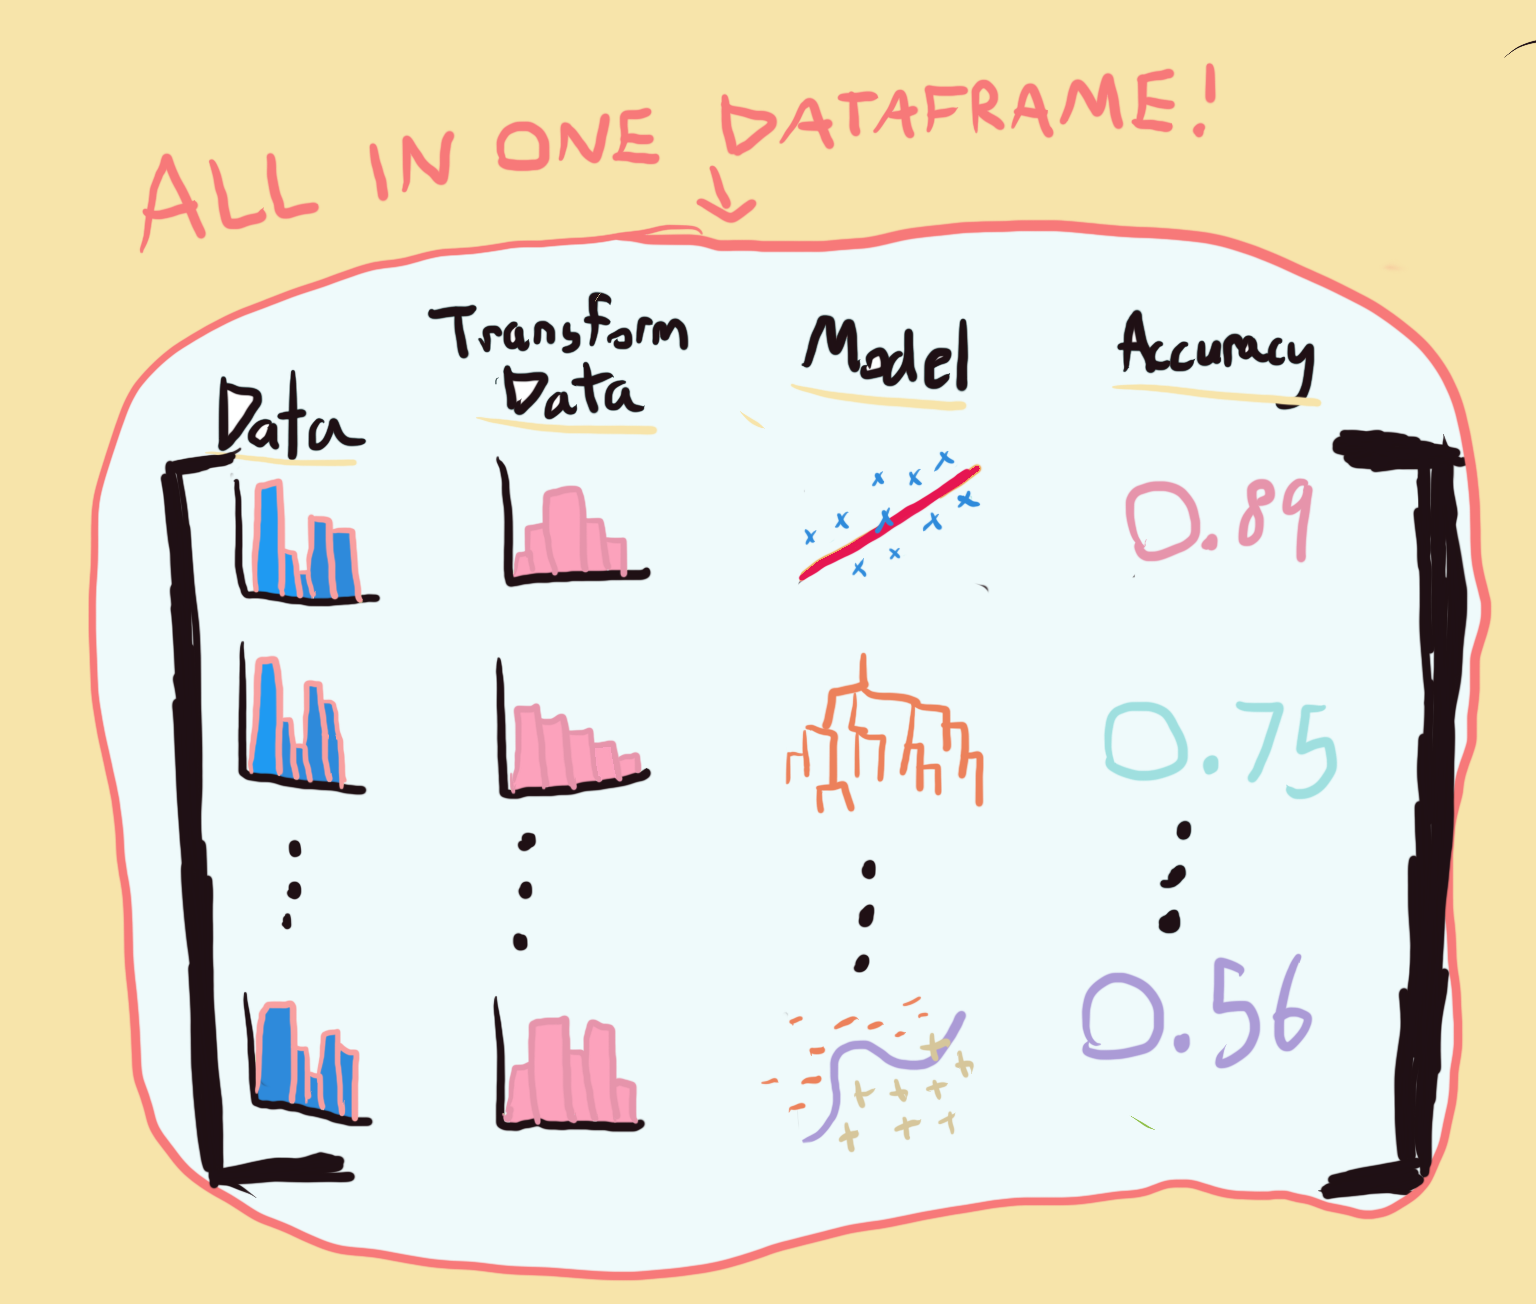 ALL IN ONE DATAFRAME!
Data
Transform
Data
Model
Accuracy
0.89
0.75
0.56